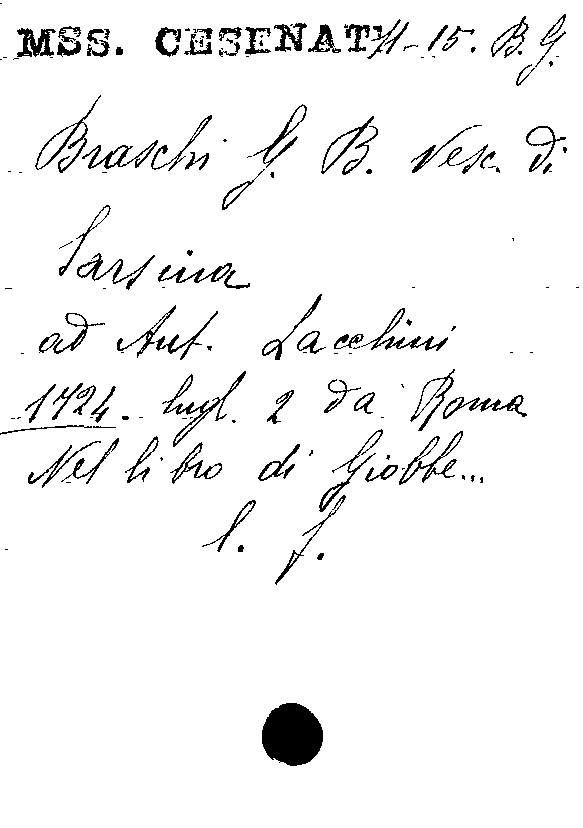 MSS. CESENAT. 11-15. B. G.
Braschi G. B. Vesc. di
Sarsina
ad Ant. Lacchini
1724. lugl. 2 da Roma
Nel libro di Giobbe...
l. f.